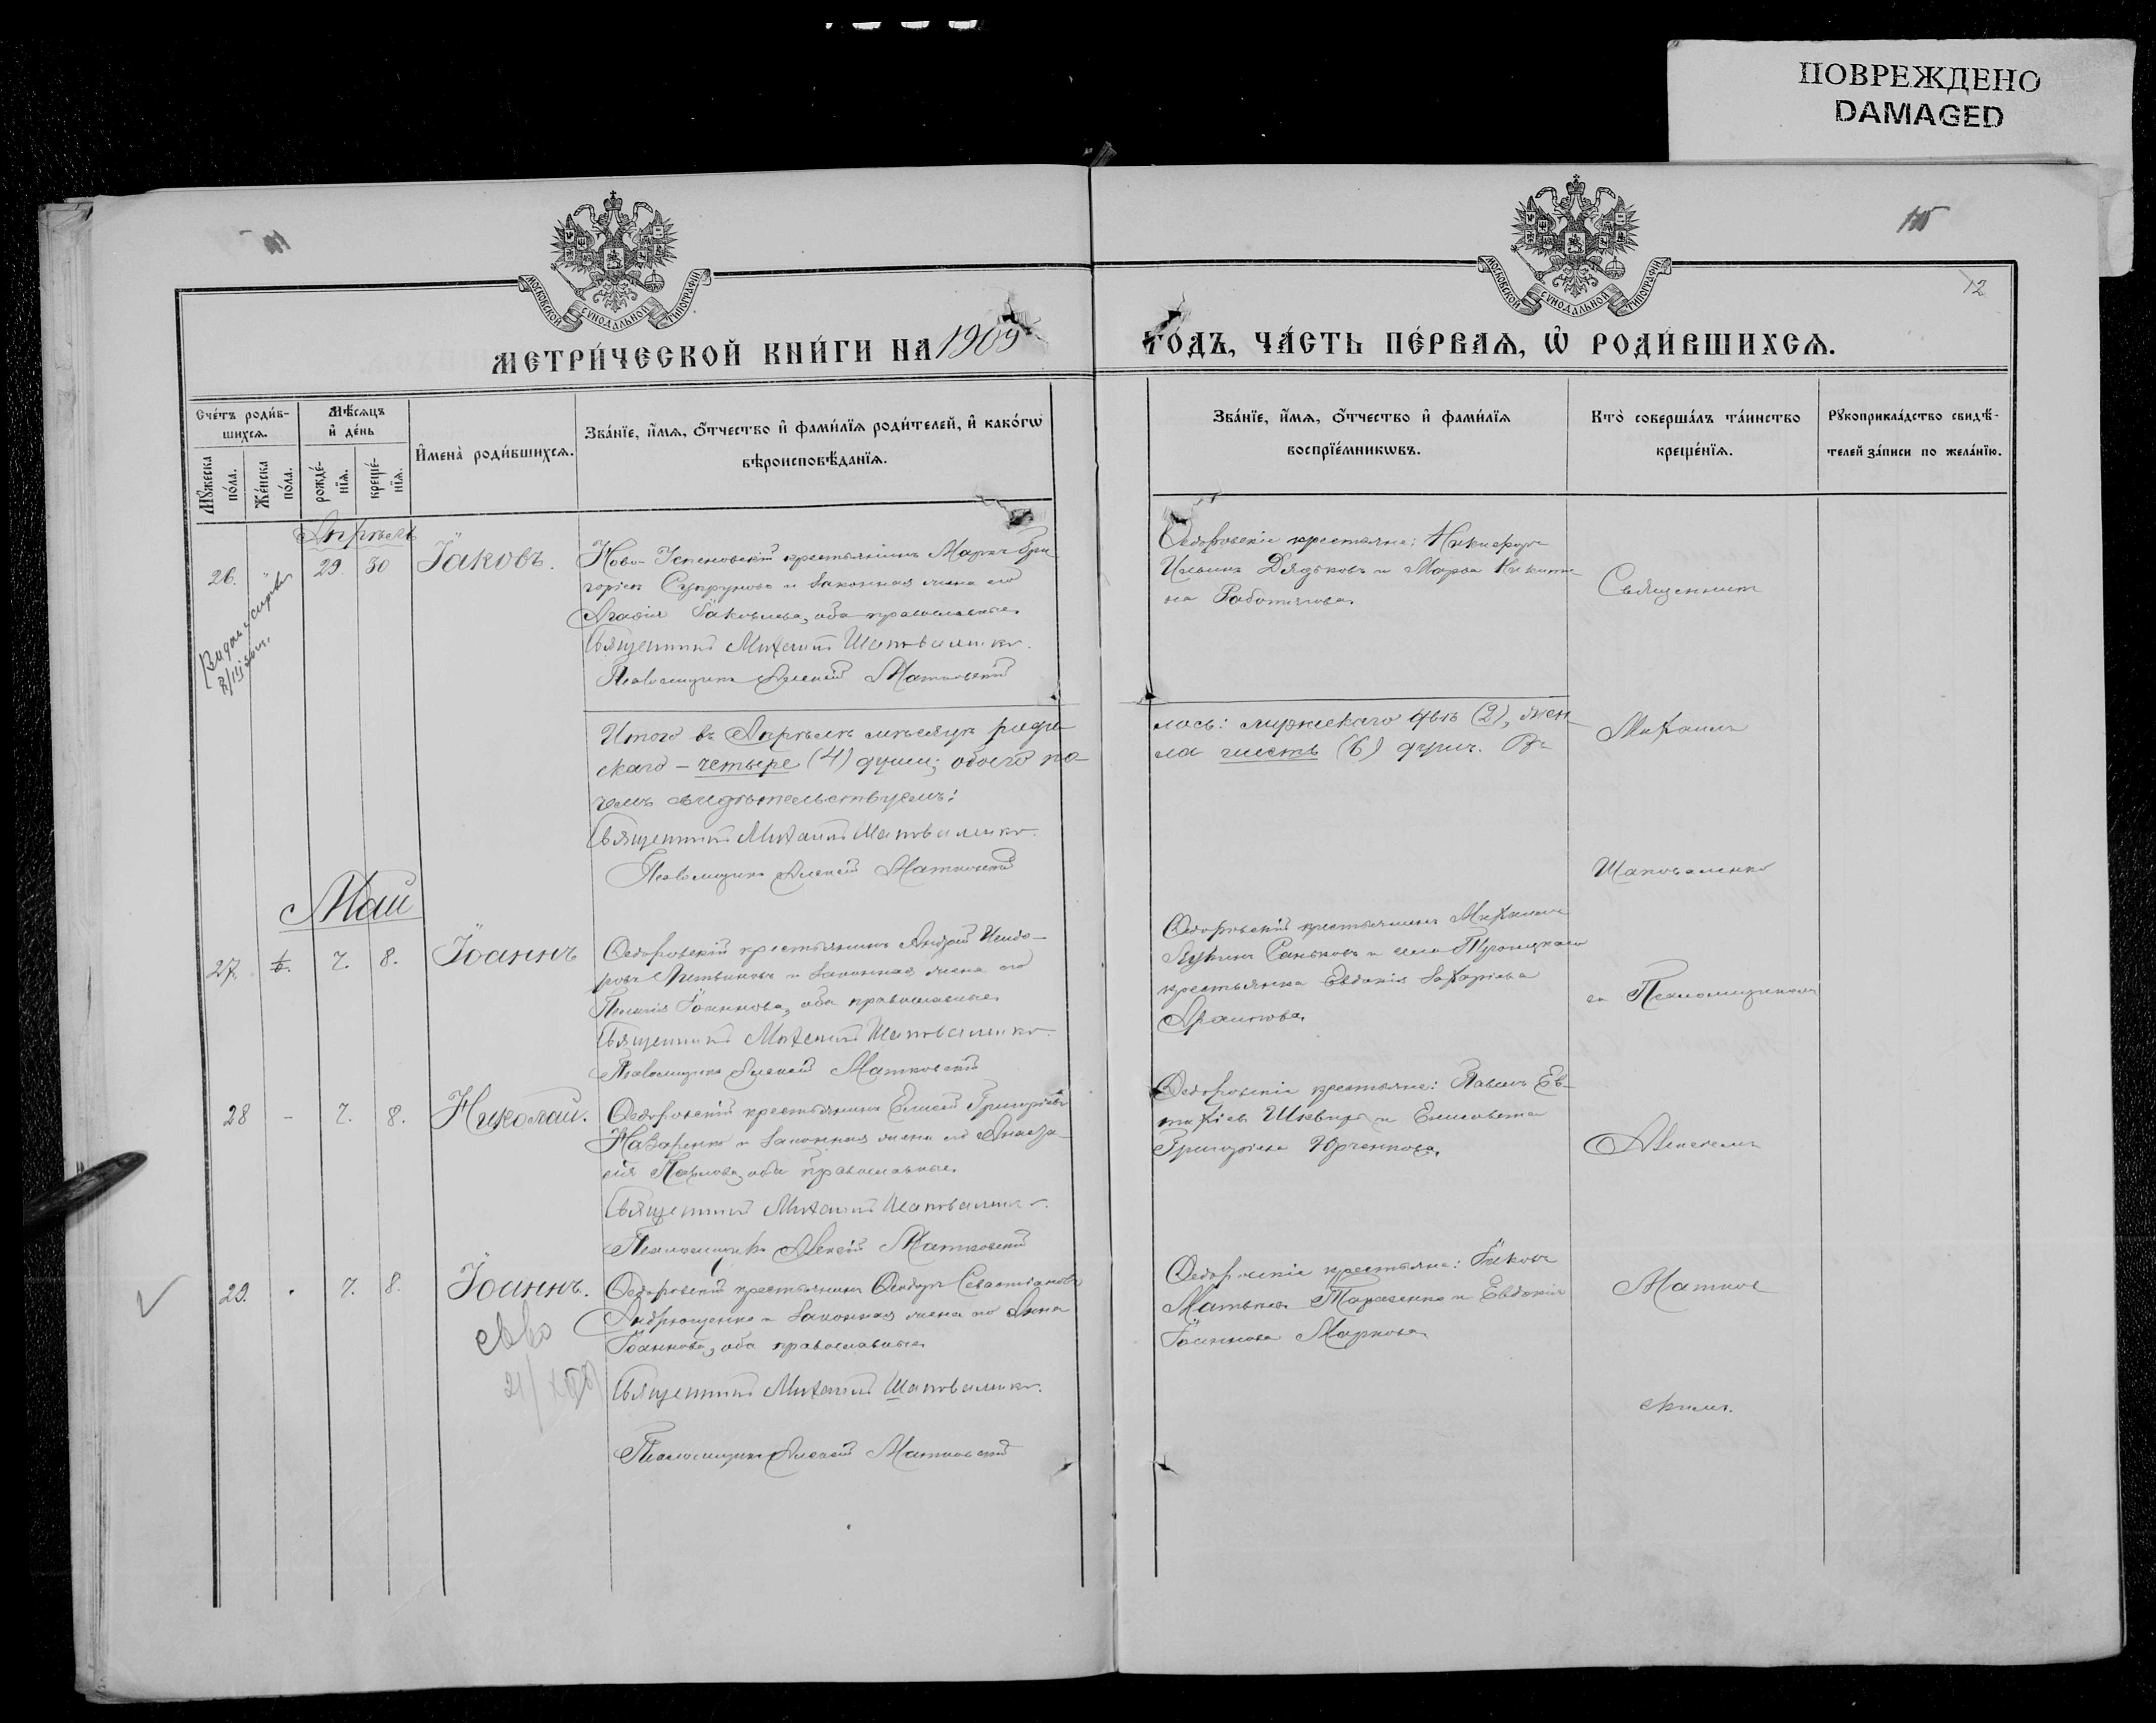 ПОВРЕЖДЕНО
DAMAGED
12
МОСКОВСКОЙ СѴНОДАЛЬНОЙ ТИПОГРАФІИ
МОСКОВСКОЙ СѴНОДАЛЬНОЙ ТИПОГРАФІИ
МЕТРИ́ЧЕСКОЙ КНИ́ГИ НА 1909
ГО́ДЪ, ЧА́СТЬ ПЕ́РВАЯ, Ѡ҆ РОДИ́ВШИХСЯ.
Сче́тъ роди́в-
шихся.
Мꙋ́жеска
по́ла.
Же́нска
по́ла.
Мѣ́сяцъ
и҆ де́нь
рожде́-
нїя.
креще́-
нїя.
И҆мена̀ роди́вшихся.
Зва́нїе, и҆́мя, ѻ҆́тчество и҆ фами́лїя роди́телей, и҆ како́гѡ
вѣроисповѣ́данїя.
Зва́нїе, и҆́мя, ѻ҆́тчество и҆ фами́лїя
воспрїе́мникѡвъ.
Кто̀ соверша́лъ та́инство
креще́нїя.
Рꙋкоприкла́дство свидѣ́-
телей за́писи по жела́нїю.
Апрѣль
26. 29. 30 Іаковъ.
Ново-Успеновскій крестьянинъ Маркъ Гри
горіевъ Супруновъ и законная жена его
Агафія Іаковлева, оба православные.
Священникъ Михаилъ Шаповаленко.
Псаломщикъ Алексій Матковскій
Ѳедоровскіе крестьяне: Никифоръ
Ильинъ Дядьковъ и Марѳа Никити
на Работягова.
Священникъ
Итого въ Апрѣлѣ мѣсяцѣ роди
лось: мужескаго два (2), жен
скаго – четыре (4) души; обоего по-
ла шесть (6) душъ. Въ
чемъ свидѣтельствуемъ:
Священникъ Михаилъ Шаповаленко.
Псаломщикъ Алексій Матковскій
Михаилъ
Шаповаленко
Май
27. 7. 8. Іоаннъ
Ѳедоровскій крестьянинъ Андрей Исидо-
ровъ Литвиновъ и законная жена его
Пелагія Іоаннова, оба православные.
Священникъ Михаилъ Шаповаленко.
Псаломщикъ Алексій Матковскій
Ѳедоровскій крестьянинъ Михаилъ
крестьянка Евдокія Захаріева
съ Псаломщикомъ
28 - 7. 8. Николай.
Ѳедоровскій крестьянинъ Елисей Григоріевъ
Назаренко и законная жена его Анаста-
сія Павлова, оба православные.
Священникъ Михаилъ Шаповаленко.
Псаломщикъ Алексій Матковскій
Ѳедоровскіе крестьяне: Павелъ Ев-
тихіевъ и Елисавета
Григоріева Юрченкова.
Алексіемъ
29. 7. 8. Іоаннъ.
Ѳедоровскій крестьянинъ Ѳеодоръ Севастіановъ
Андрющенко и законная жена его Анна
Іоаннова, оба православные.
Священникъ Михаилъ Шаповаленко.
Псаломщикъ Алексій Матковскій
Ѳедоровскіе крестьяне: Іаковъ
Матвѣевъ Тарасенко и Евдокія
Іоаннова Маркова.
Матков
скимъ.